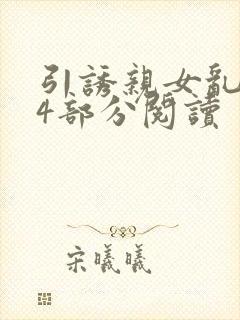 引誘親女亂
4部分閱讀
宋曦曦